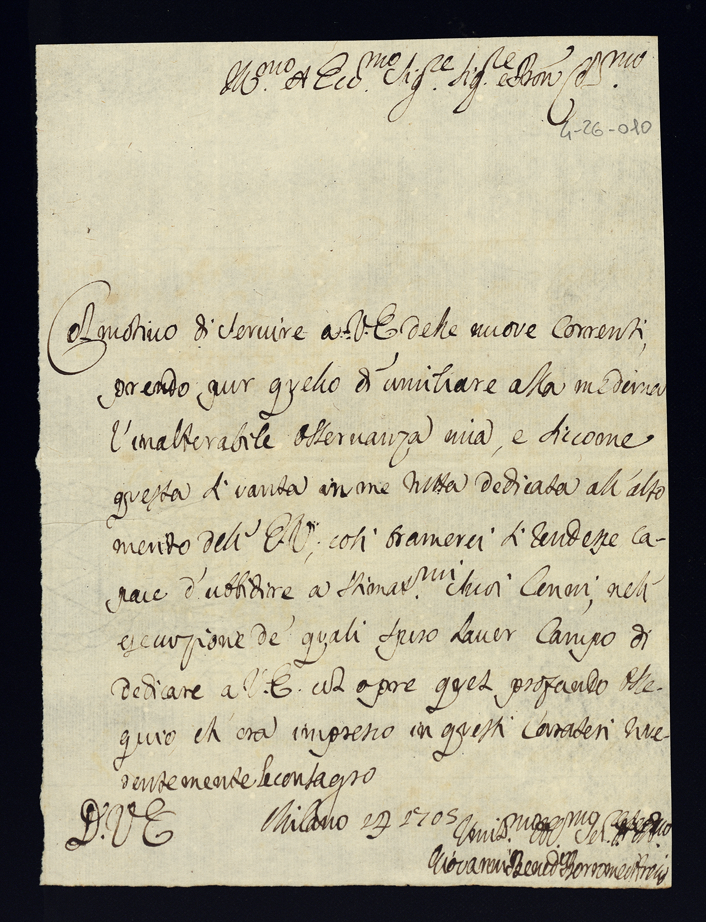 Ill.mo et Ecc.mo Sig.re Sig.re e Pron Col.mo
4-26-010
Al motivo di servire a V.E delle nuove correnti,
prendo pur quello d'umiliare alla medema
l'inalterabile osservanza mia, e siccome
questa si vanta in me tutta dedicata all'alto
merito dell' E.V; così bramerei si rendesse ca-
pace d'ubbidire a stimat.mi suoi Cenni, nell'
esecuzione de' quali spero haver Campo di
dedicare a V.E. coll opre quel profondo osse-
quio ch' ora impresso in questi Carateri rive-
rentemente le consagro
D.V E
Milano 1705
Umil.mo Ser.
Giovanni Bened. Borromeo Arese